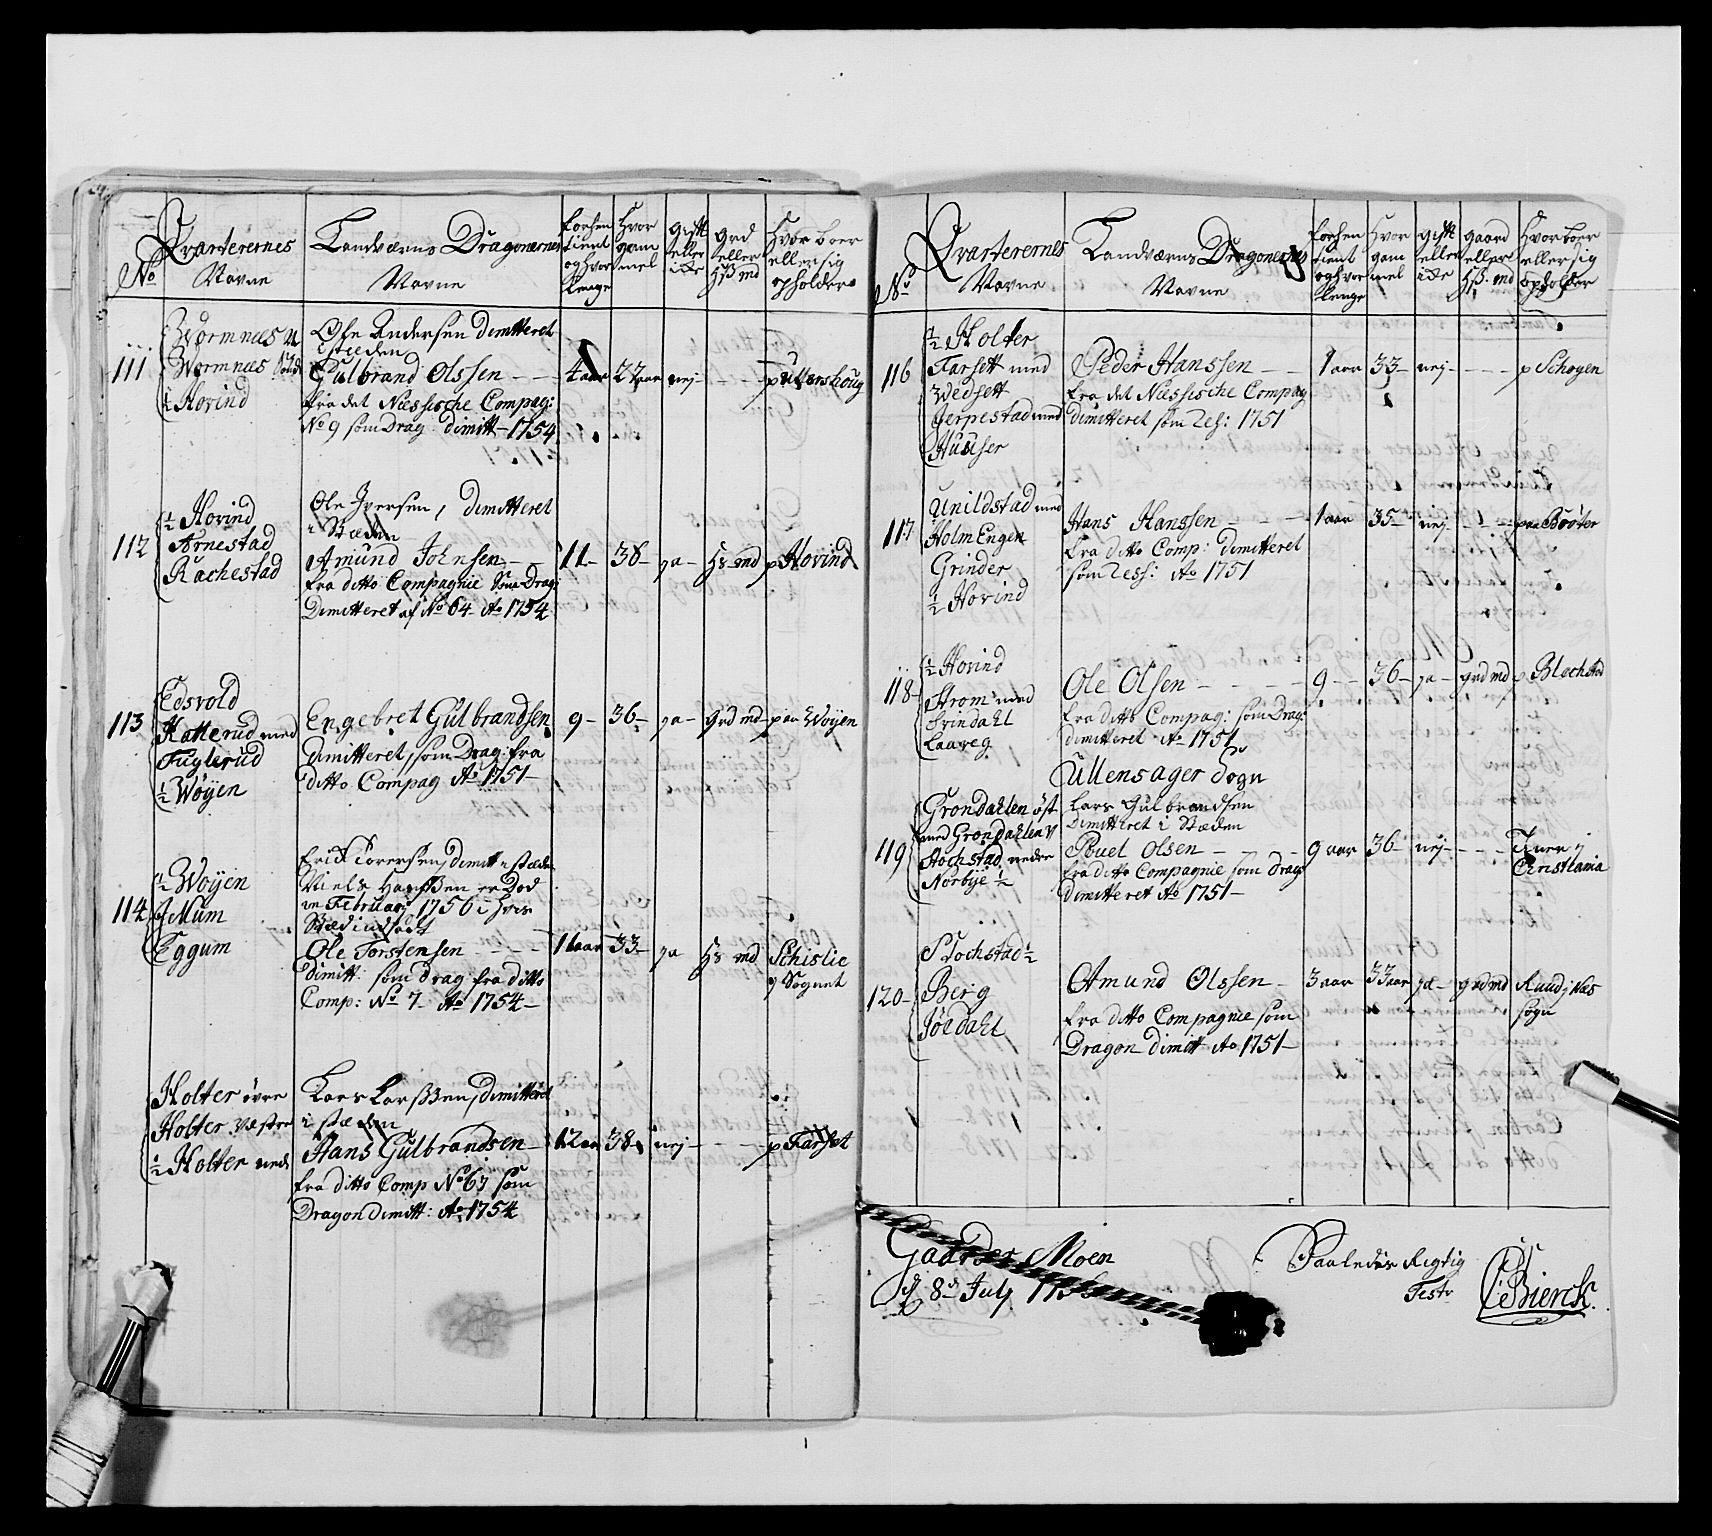 No
Qvarterernes
Navne
Landværns Dragonernes
Navne
forhen
tient
og hvor
lenge
Hvor
gam
mel
gift
eller
icke
grd
eller
hß md
Hvor boer
eller sig
opholder
111
Wormnæs
Wormnæs
½ Hovind
Ole Andersen dimitteret
i stæden
Gulbrand Olssen
fra det Næssische Compag:
No 9 som Drag: dimitt 1754
4 aar
27 aar
nej
p Ullershoug
112
½ Hovind
Arnestad
Rachestad
Ole Iversen, dimitteret
i Stæden
Amund Johnsen
fra ditto Compagnie som Drag:
Dimitteret af No 64 Ao 1754
11
38
ja
hs md
p Hovind
113
Edsvold
Hatterud med
Fuglerud
½ Woyen
Engebret Gulbrandsen
dimitteret som Drag: fra
ditto Compag Ao 1751
9
36
ja
grd md
paa Woyen
114
½ Woyen
Mum
Eggum
Erich Torersen, dimitt i stæden
Niels Hanssen er Död
in Februarj 1756 i hvis
Stæd indsadt
Ole Torstensen
dimitt: som drag fra ditto
Comp: No 7 Ao 1754
11 aar
33
ja
hs md
Schislie
j Sognet
Holter övre
Holter Vestre
½ Holter neds
Lars Larssen, dimitteret
i stæden
Hans Gulbrandsen
fra ditto Comp No 67 som
Dragon dimitt: Ao 1754
12 aar
38
nej
p Farset
No
Qvarterernes
Navne
Landværns Dragonernes
Navne
forhen
tient
og hvor
lenge
Hvor
gam
mel
gift
eller
icke
gaard
eller
hß. md
Hvor boer
eller sig
opholder
116
½ Holter
Farsett med
Wedsett
Jerpestad med
Huuser
Peder Hanssen
fra det Næssische Compag
dimitteret som Res: 1751
1 aar
33
nej
p Schoyen
117
Unildstad med
Holm Engen
Grinder
½ Hovind
Hans Hanssen
fra ditto Comp: dimitteret
som Ress: Ao 1751
1 aar
35
nej
paa Brøter
118
½ Hovind
Strom med
Svindahl
Laareg
Ole Olsen
fra ditto Compag: som Drag:
dimitteret Ao 1751
9
36
ja
grd md
p Blochstad
Ullensager Sogn
119
Grondahlen öst
med Grondahlen V
Hochstad nedre
Norbye ½
Lars Gulbrandsen
Dimitteret i Stæden
Povel Olsen
fra ditto Compagnie som Drag:
dimitteret Ao 1751
9 aar
36
nej
Tiener j
Christiania
120
Hochstad ½
Berg
Jöldahl
Amund Olssen
fra ditto Compagnie som
Dragon dimitt Ao 1751
3 aar
33 aar
ja
grd md
Ruud j Næs
sogn
Gaarden Moen
d 8de July
Saaledes Rigtig
Test
CBierck